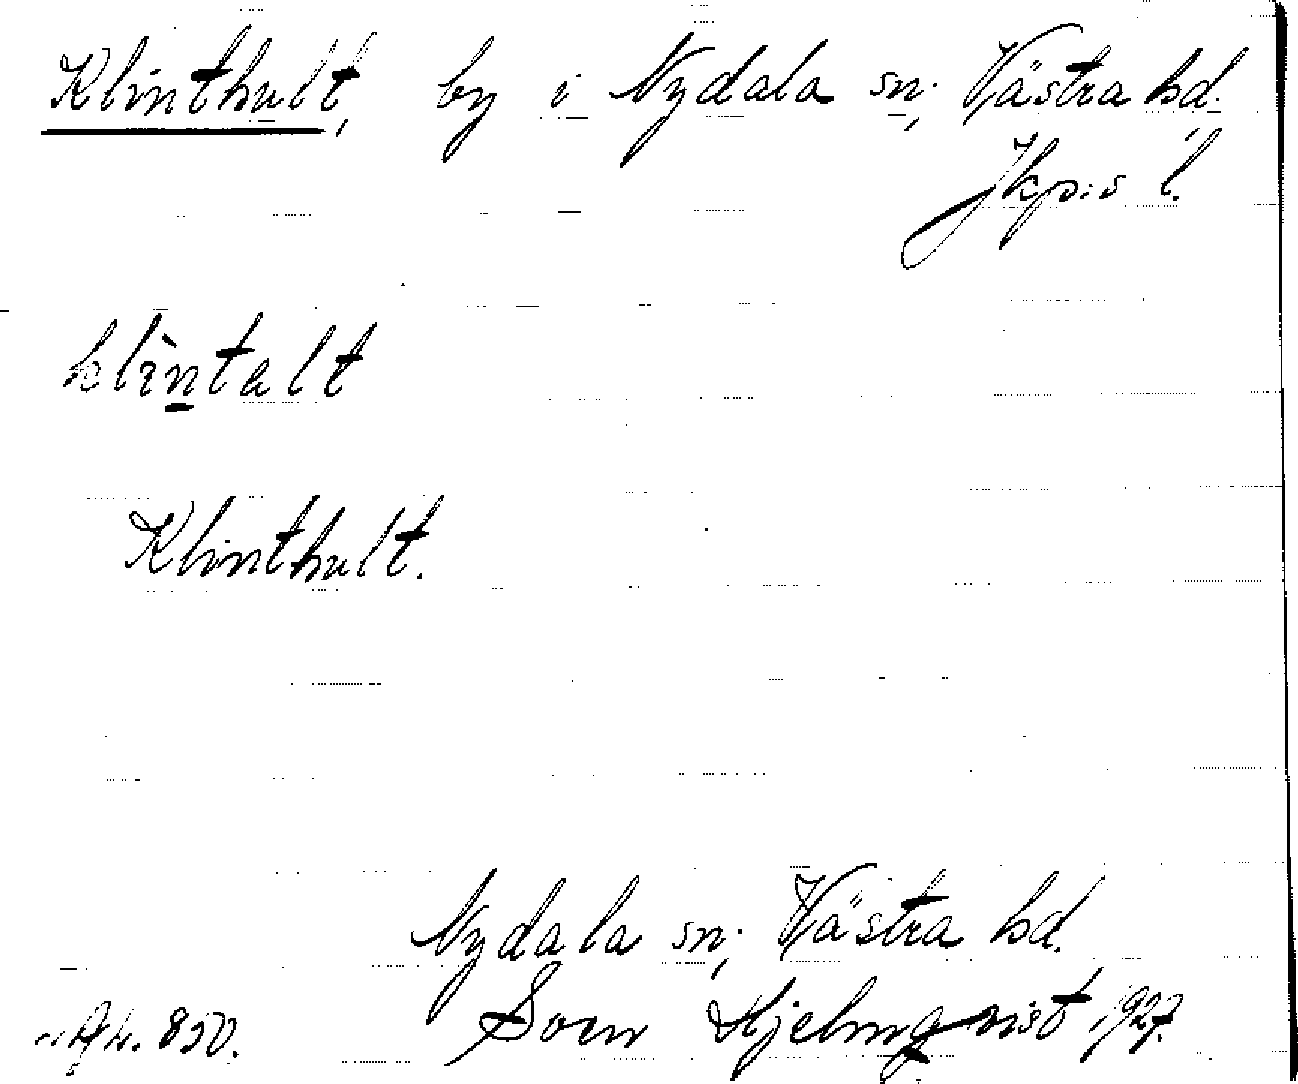 Klinthult, by i Nydala sn; Västra hd.
Jkp:s l.
klìntalt
Klinthult.
Nydala sn; Västra hd.
Sven Hjelmqvist 1927.
850.